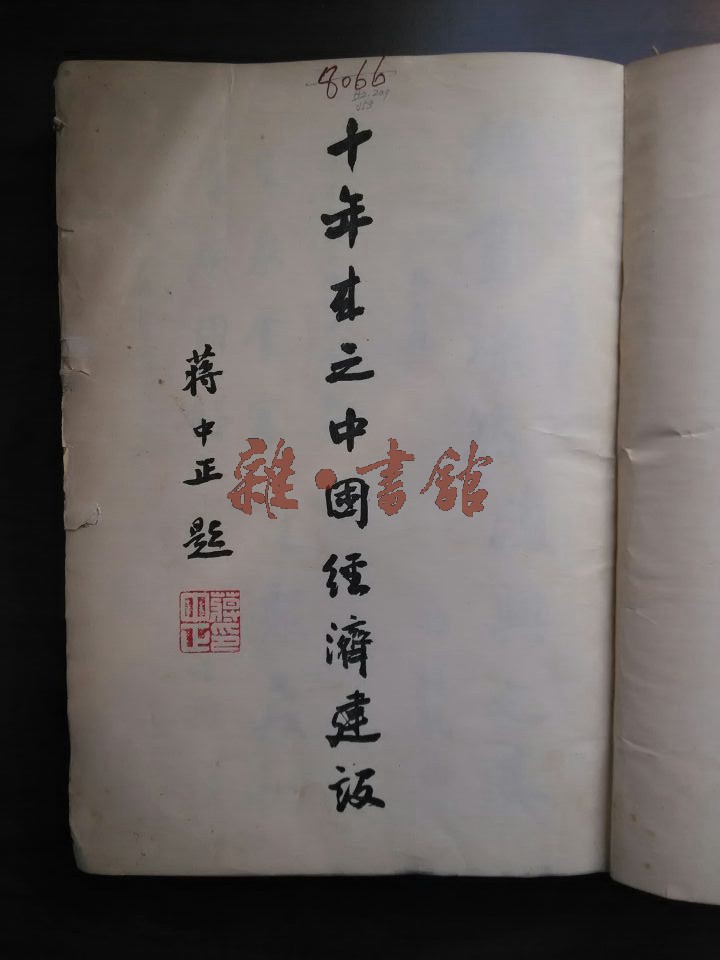 8066
十年來之中國經濟建設
蔣中正題
雜·書館